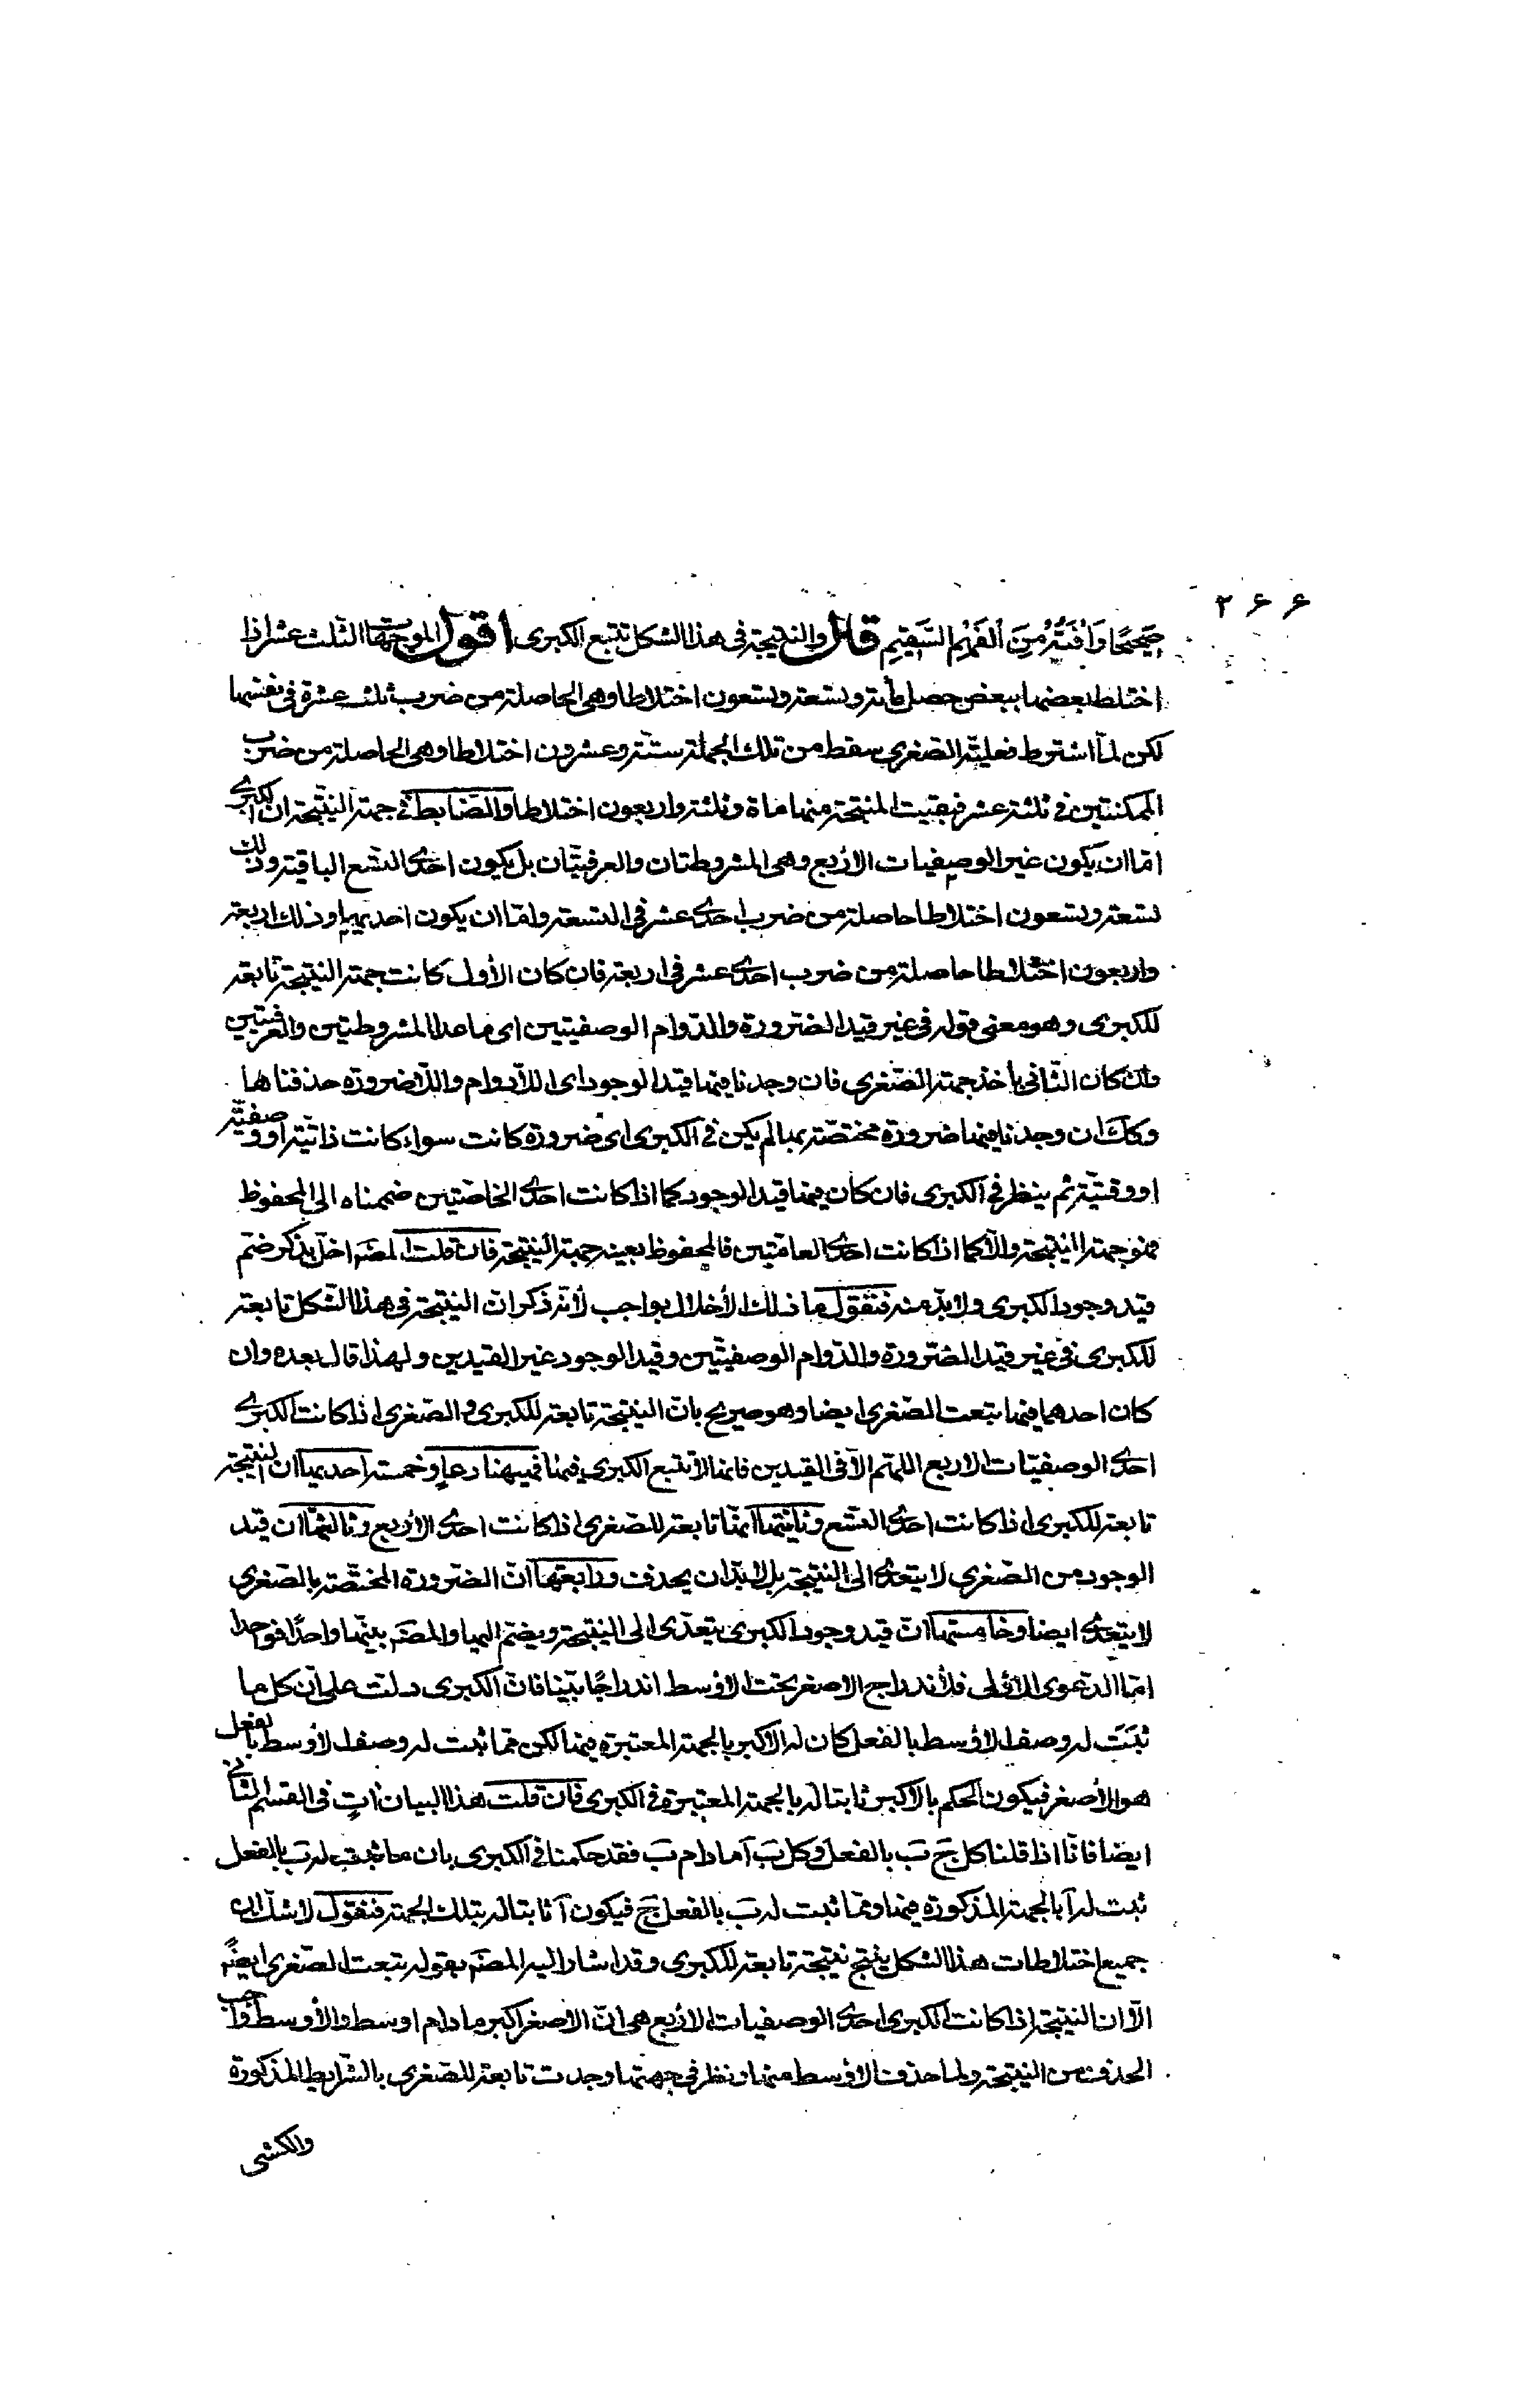 ۲۶۶
صحيحًا وَافَتُهُ مِنَ الْفَهْمِ السَّقِيمِ قال والنتيجة فى هذا الشكل تتبع الكبرى اقول الموجهات الثلث عشر اذا
اختلط بعضها ببعض حصل مأة وتسعة وستعون اختلاطا وهى الحاصلة من ضرب ثلث عشرة فى نفسها
لكن لمّا اشترط فعليّة الصّغرى سقط من تلك الجملة ستّة وعشرون اختلاطا وهى الحاصلة من ضرب
الممكنتين فى ثلثة عشر فبقيت المنتجة منها مأة وثلثة واربعون اختلاطا والضّابط فى جهة النتيجة ان الكبرى
امّا ان يكون غير الوصفيات الأربع وهى المشروطتان والعرفيتان بل يكون احدى التسع الباقية وذلك
تسعة وتسعون اختلاطا حاصلة من ضرب احدى عشر فى التسعة وامّا ان يكون احديهما وذلك اربعة
واربعون اختلاطا حاصلة من ضرب احدى عشر فى اربعة فان كان الأول كانت جهة النتيجة تابعة
للكبرى وهو معنى قوله فى غير قيد الضرورة والدّوام الوصفيتين اى ما عدا المشروطتين والعرفيتين
وان كان الثّانى يأخذ جهة الصّغرى فان وجدنا فيها قيد الوجود اى اللّادوام واللّاضرورة حذفناها
وكك ان وجدنا فيها ضرورة مختصّة بها لم يكن فى الكبرى اى ضرورة كانت سواء كانت ذاتيّة او وصفيّة
او وقتيّة ثم ينظر فى الكبرى فان كان فيها قيد الوجود كما اذا كانت احدى الخاصّتين ضممناه الى المحفوظ
فهو جهة النتيجة والّا كما اذا كانت احدى العامّتين فالمحفوظ بعينه جهة النتيجة فان قلت المصَ اخلّ بذكر ضمّ
قيد وجود الكبرى ولا بدّ منه فنقول ما ذلك الأخلال بواجب لأنّه ذكر انّ النتيجة فى هذا الشّكل تابعة
للكبرى فى غير قيد الضّرورة والدّوام الوصفيّتين وقيد الوجود غير القيدين ولهذا قال بعده وان
كان احدهما فيها تبعت الصّغرى ايضا وهو صريح بانّ النتيجة تابعة للكبرى والصّغرى اذا كانت الكبرى
احدى الوصفيّات الاربع اللهمّ الّا فى القيدين فانها لا تتبع الكبرى فيهما فههنا دعاوٍ خمسة احديها ان النتيجة
تابعة للكبرى اذا كانت احدى التّسع وثانيتها انّها تابعة للصّغرى اذا كانت احدى الأربع وثالثها ان قيد
الوجود من الصّغرى لا يتعدّى الى النتيجة بل لا بدّ ان يحذف ورابعتها انّ الضّرورة المختصّة بالصغرى
لا يتعدّى ايضا وخامستها انّ قيد وجود الكبرى يتعدّى الى النتيجة ويضمّ اليها والمصَ بيّنها واحدًا فواحدا
امّا الدّعوى الأولى فلأندراج الاصغر تحت الاوسط اندراجًا بيّنا فانّ الكبرى دلّت على انّ كل ما
ثبَتَ له وصف الأوسط بالفعل كان له الاكبر بالجهة المعتبرة فيها لكن ممّا ثبت له وصف الأوسط بالفعل
هو الأصغر فيكون الحكم بالأكبر ثابتا له بالجهة المعتبرة فى الكبرى فان قلت هذا البيان اتٍ فى القسم الثّانى
ايضا فانّا اذا قلنا كل جَ بَ بالفعل وكل بَ آ ما دام بَ فقد حكمنا فى الكبرى بان ما ثبت له بَ بالفعل
ثبت له آ بالجهة المذكورة فيها وممّا ثبت له بَ بالفعل جَ فيكون آ ثابتا له بتلك الجهة فنقول لا شك ان
جميع اختلاطات هذا الشكل ينتج نتيجة تابعة للكبرى وقد اشار اليه المصَ بقوله تبعت الصّغرى ايضًا
الّا ان النتيجة اذا كانت الكبرى احدى الوصفيات الأربع هى انّ الاصغر اكبر ما دام اوسط والأوسط واجب
الحذف من النتيجة ولما حذف الأوسط منها ونظر فى جهتها وجدت تابعة للصّغرى بالشّرايط المذكورة
والكشى